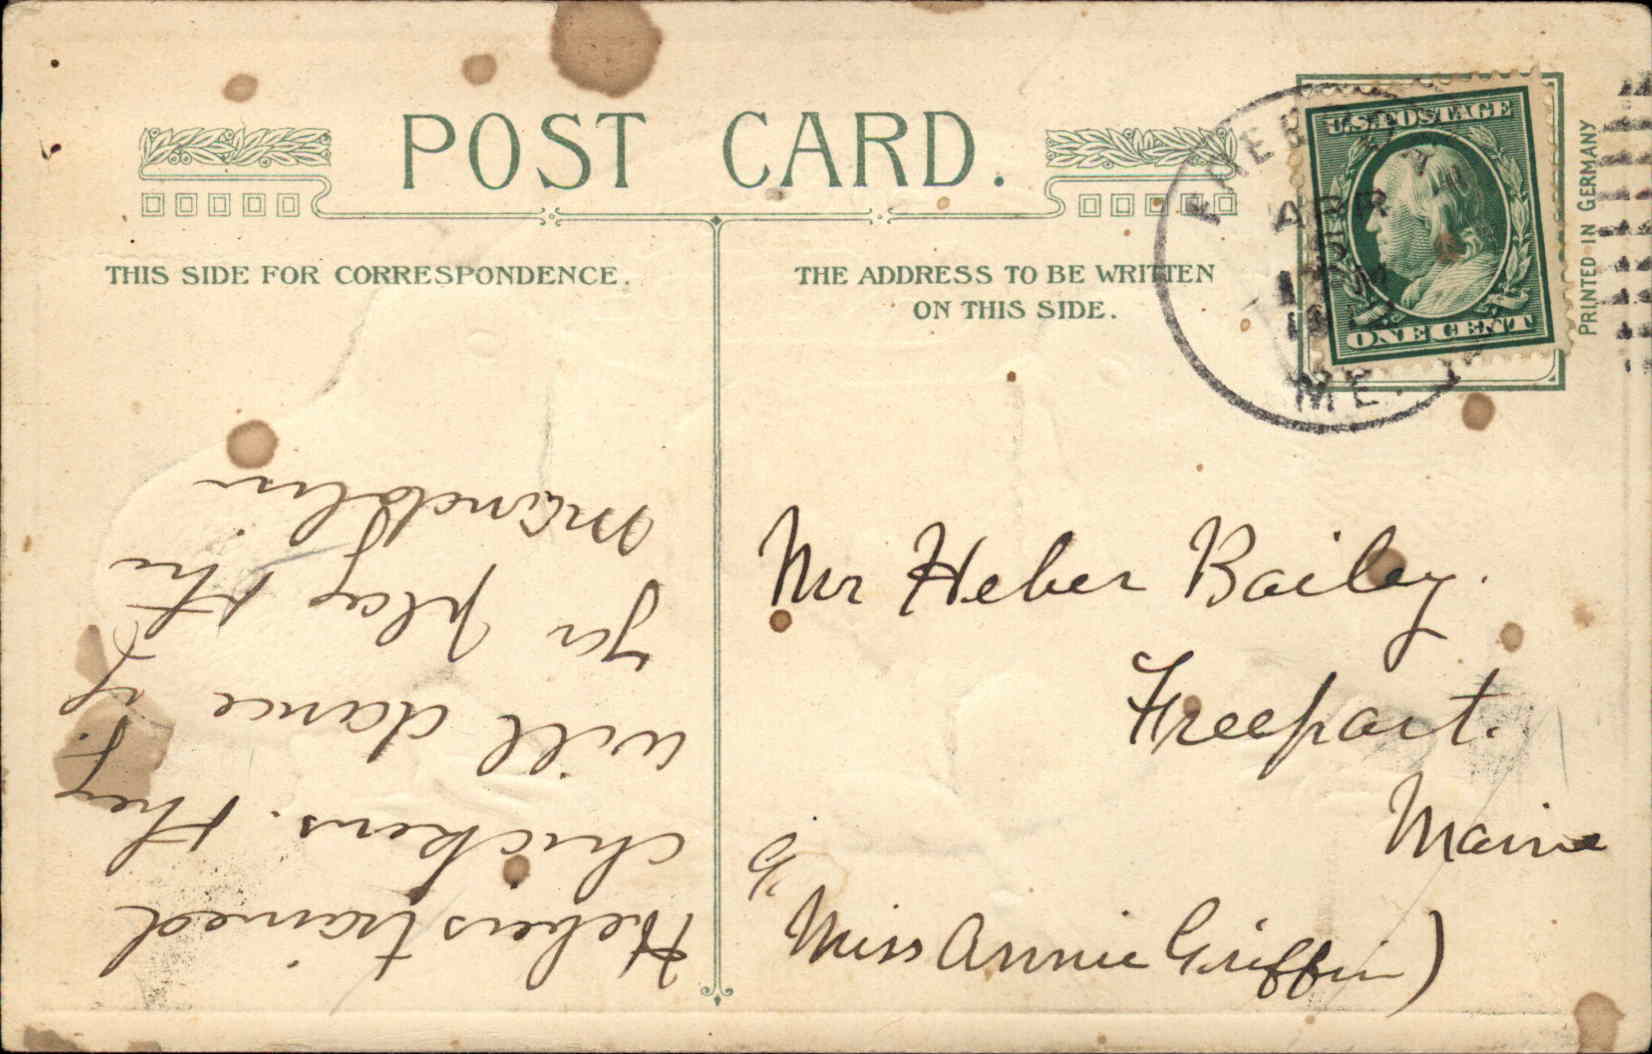 POST CARD.
THIS SIDE FOR CORRESPONDENCE.
THE ADDRESS TO BE WRITTEN
ON THIS SIDE.
U.S. POSTAGE
ONE CENT
PRINTED IN GERMANY
APR
ME.
Hebers trained
chickens. they
will dance if
ya play the
mandolin
Mr Heber Bailey.
Freeport.
Maine
c/o
Miss Annie Griffin)